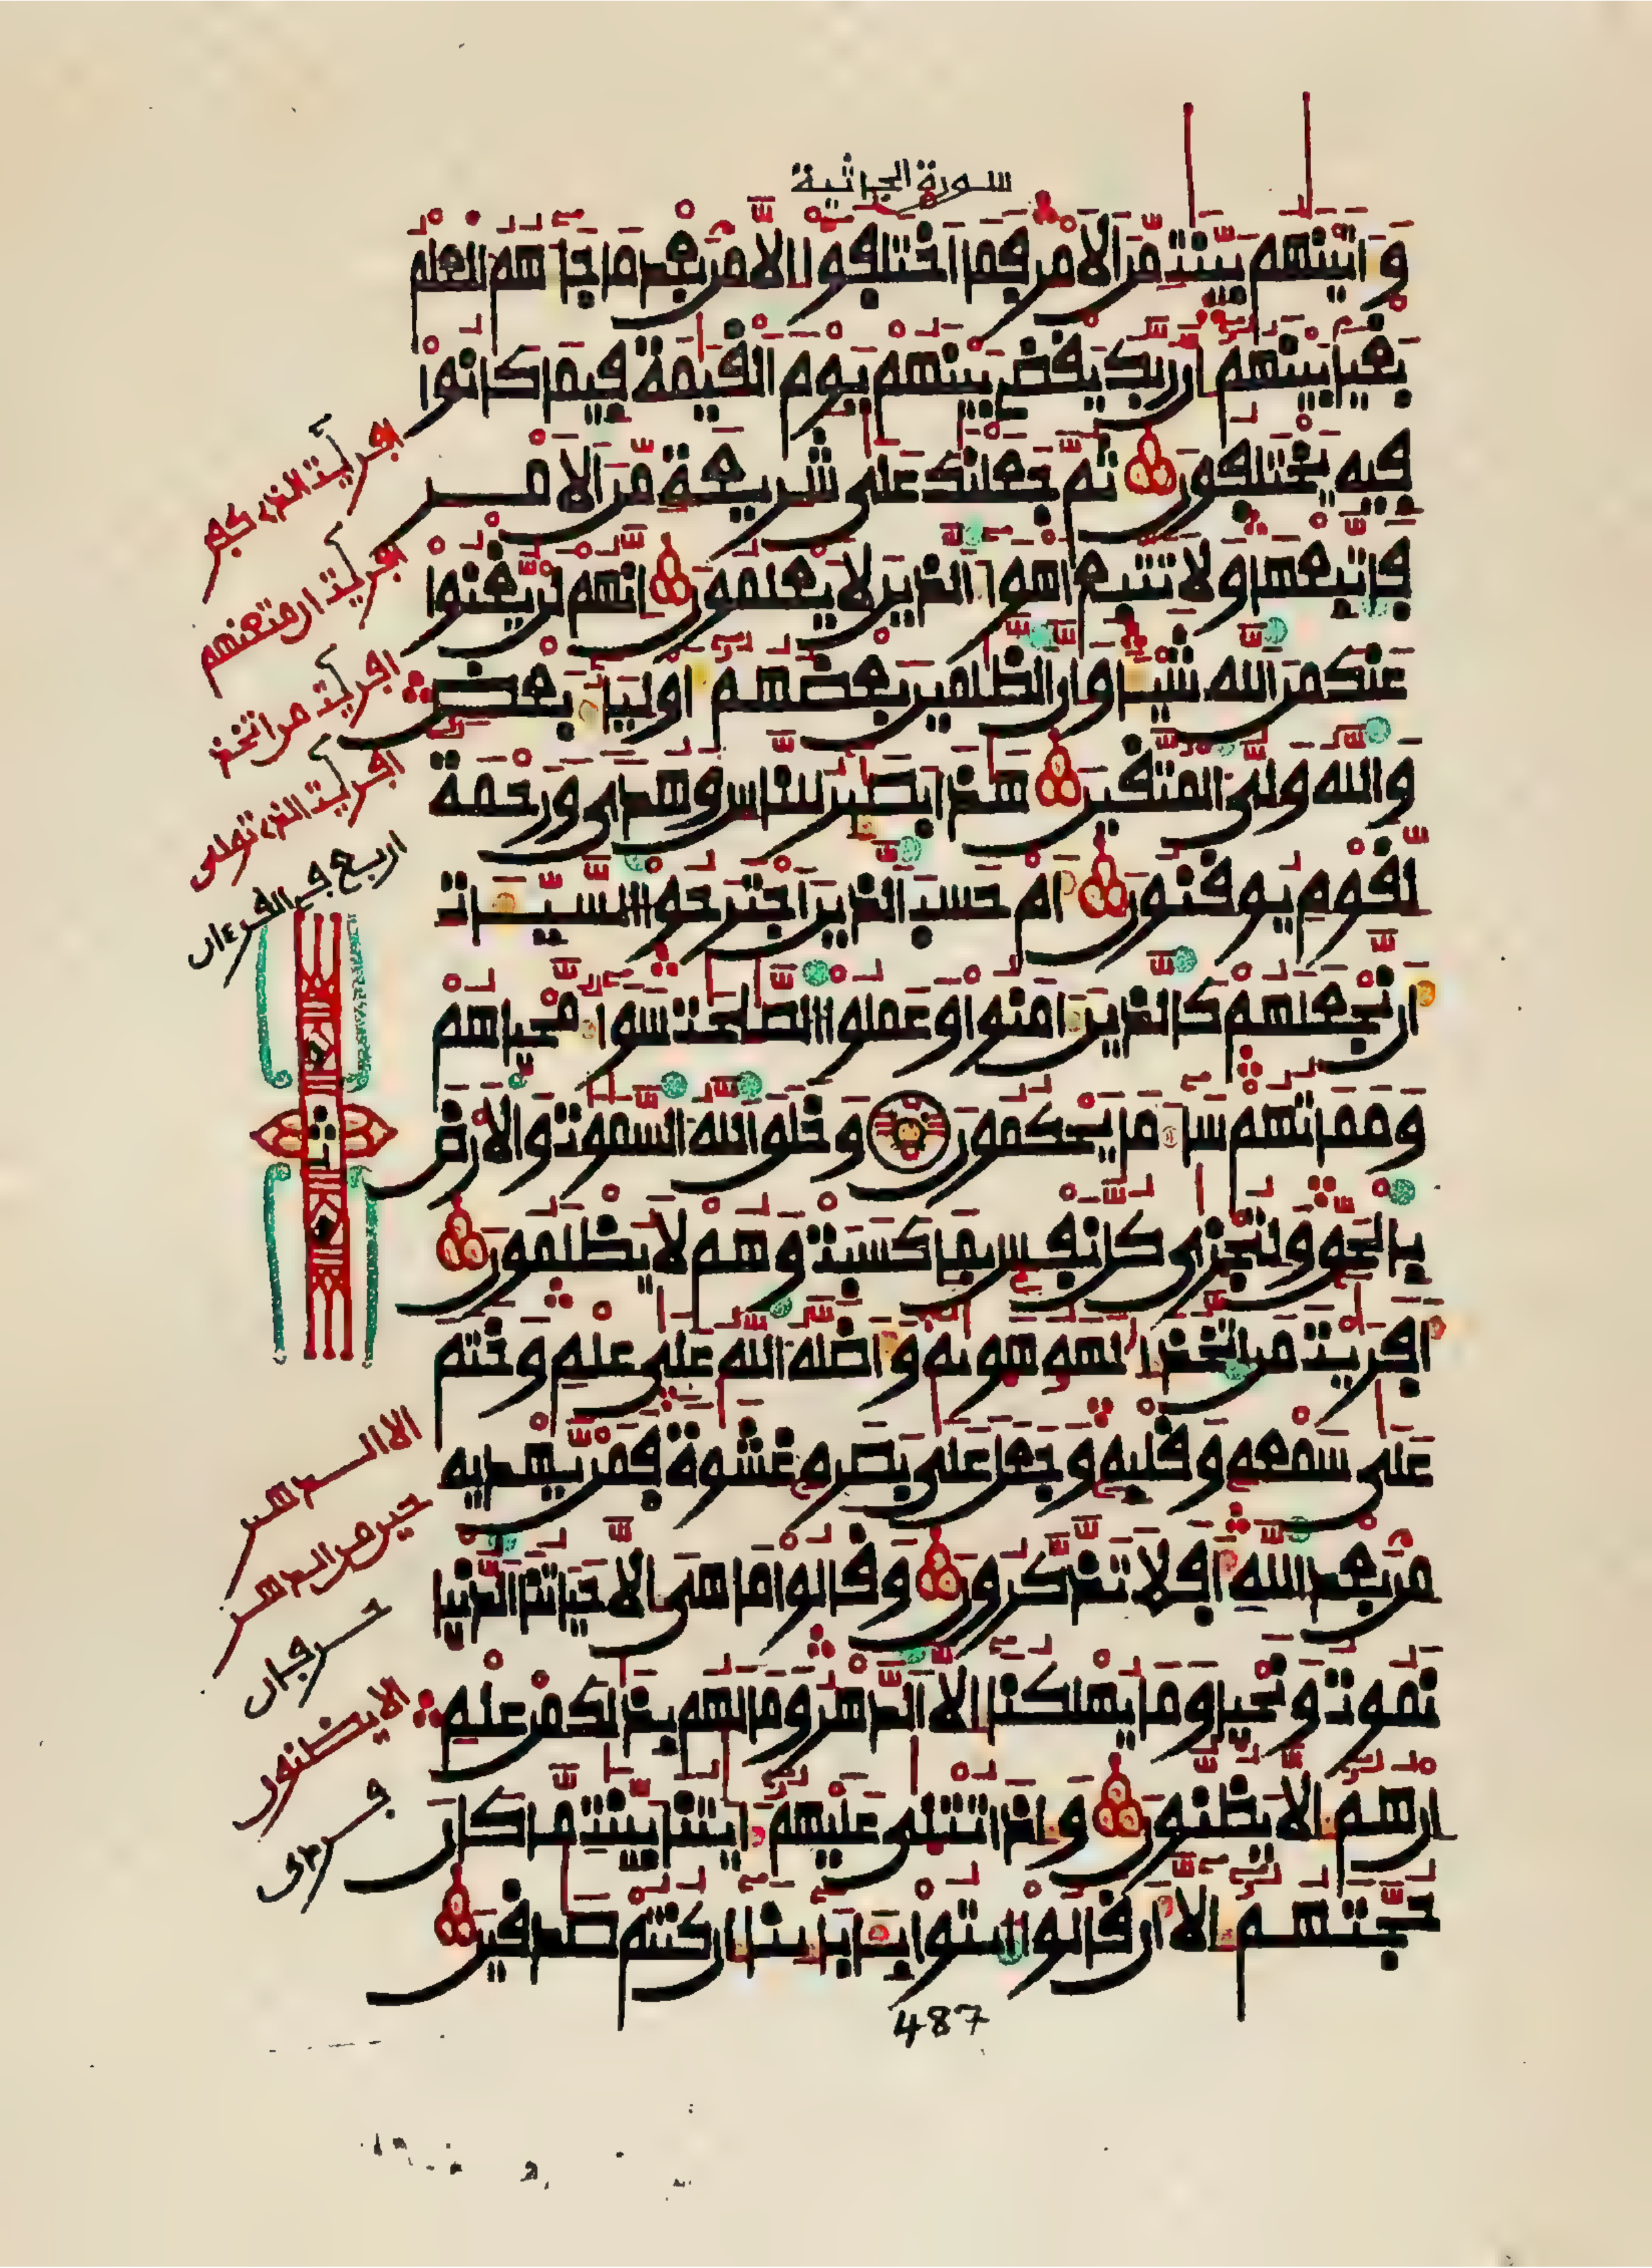 سورة الجاثية
وءاتينهم بينت من الامر فما اختلفوا الا من بعد ما جاءهم العلم
بغيا بينهم ان ربك يقضي بينهم يوم القيمة فيما كانوا
فيه يختلفون ثم جعلنك على شريعة من الامر
فاتبعها ولا تتبع اهواء الذين لا يعلمون انهم لن يغنوا
عنك من الله شيئا وان الظلمين بعضهم اولياء بعض
والله ولي المتقين هذا بصئر للناس وهدى ورحمة
لقوم يوقنون ام حسب الذين اجترحوا السيئات
ان نجعلهم كالذين ءامنوا وعملوا الصلحت سواء محياهم
ومماتهم ساء ما يحكمون وخلق الله السموت والارض
بالحق ولتجزى كل نفس بما كسبت وهم لا يظلمون
افرءيت من اتخذ الهه هويه واضله الله على علم وختم
على سمعه وقلبه وجعل على بصره غشوة فمن يهديه
من بعد الله افلا تذكرون وقالوا ما هي الا حياتنا الدنيا
نموت ونحيا وما يهلكنا الا الدهر وما لهم بذلك من علم
ان هم الا يظنون واذا تتلى عليهم ءايتنا بينت ما كان
حجتهم الا ان قالوا ايتوا بـابائنا ان كنتم صدقين
افرءيت الذي كفر
افرءيت ان متعنهم
افرءيت من اتخذ
افرءيت الذي تولى
اربع في القرءان
ثمن
الا الدهر
حين من الدهر
حرفان
الا يظنون
487